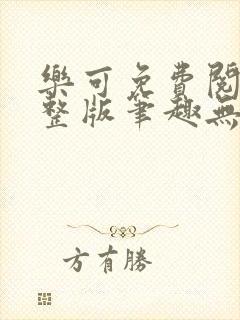 樂可免費閱
整版筆趣無
方有勝